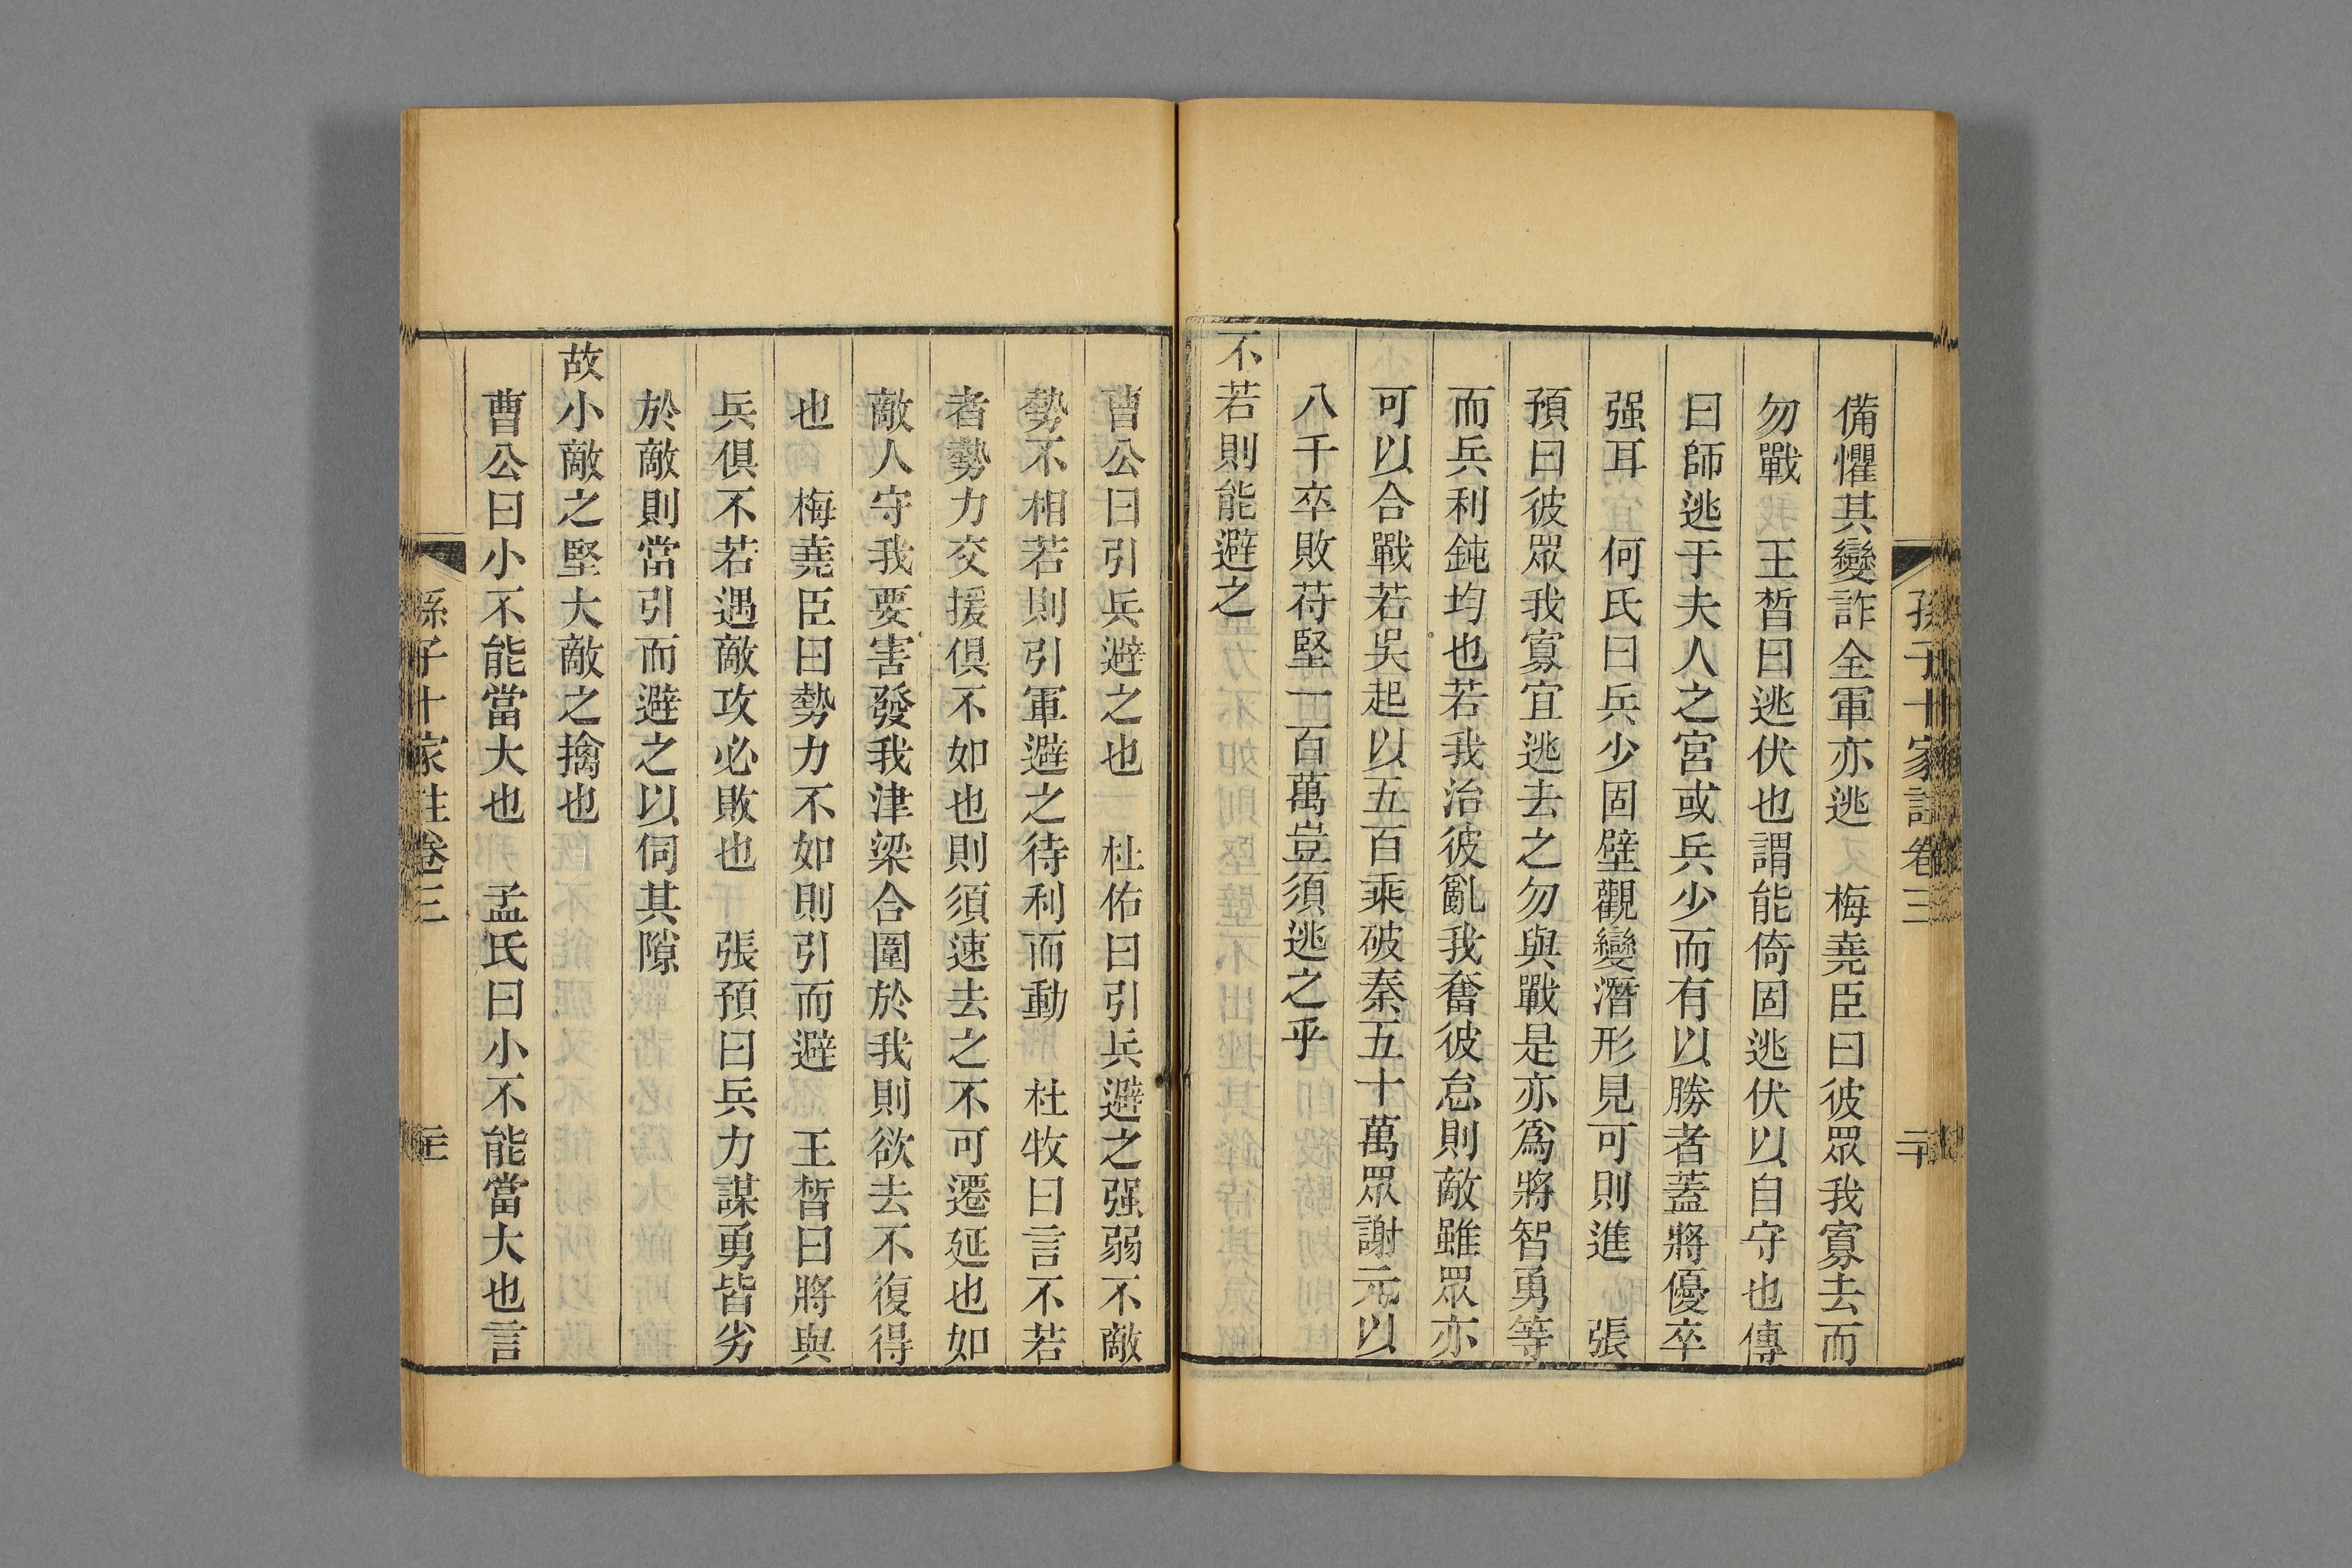 孫子十家註卷三 二十
備懼其變詐全軍亦逃 梅堯臣曰彼眾我寡去而
勿戰 王晳曰逃伏也謂能倚固逃伏以自守也傳
曰師逃于夫人之宮或兵少而有以勝者蓋將優卒
强耳 何氏曰兵少固壁觀變潛形見可則進 張
預曰彼眾我寡宜逃去之勿與戰是亦爲將智勇等
而兵利鈍均也若我治彼亂我奮彼怠則敵雖眾亦
可以合戰若吳起以五百乘破秦五十萬眾謝元以
八千卒敗苻堅一百萬豈須逃之乎
不若則能避之
曹公曰引兵避之也 杜佑曰引兵避之强弱不敵
勢不相若則引軍避之待利而動 杜牧曰言不若
者勢力交援俱不如也則須速去之不可遷延也如
敵人守我要害發我津梁合圍於我則欲去不復得
也 梅堯臣曰勢力不如則引而避 王晳曰將與
兵俱不若遇敵攻必敗也 張預曰兵力謀勇皆劣
於敵則當引而避之以伺其隙
故小敵之堅大敵之擒也
曹公曰小不能當大也 孟氏曰小不能當大也言
孫子十家註卷三